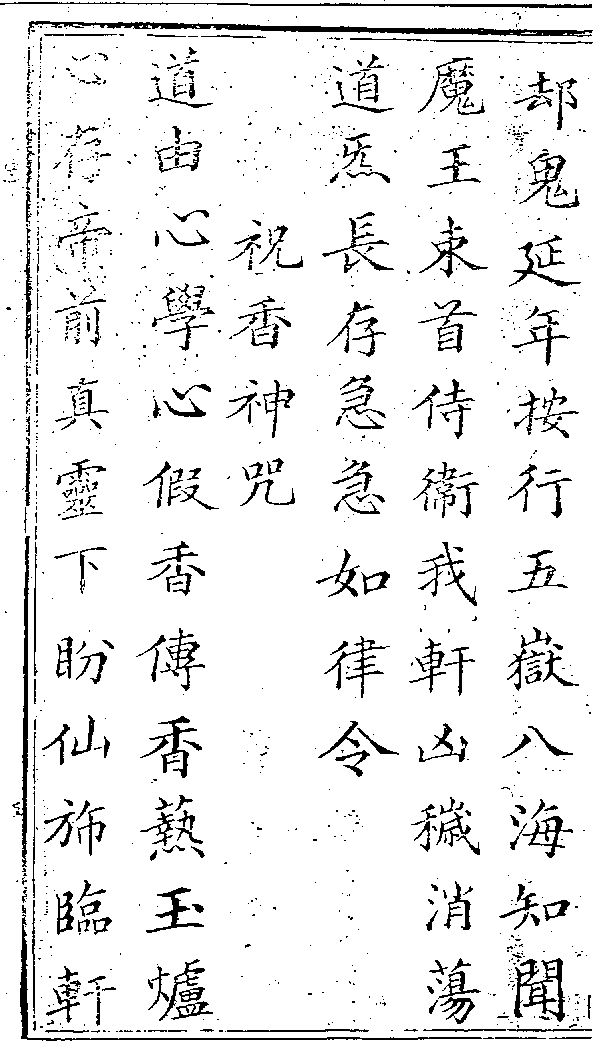 却鬼延年按行五嶽八海知聞
魔王束首侍衛我軒凶穢消蕩
道炁長存急急如律令
祝香神咒
道由心學心假香傳香爇玉爐
心存帝前真靈下盼仙斾臨軒